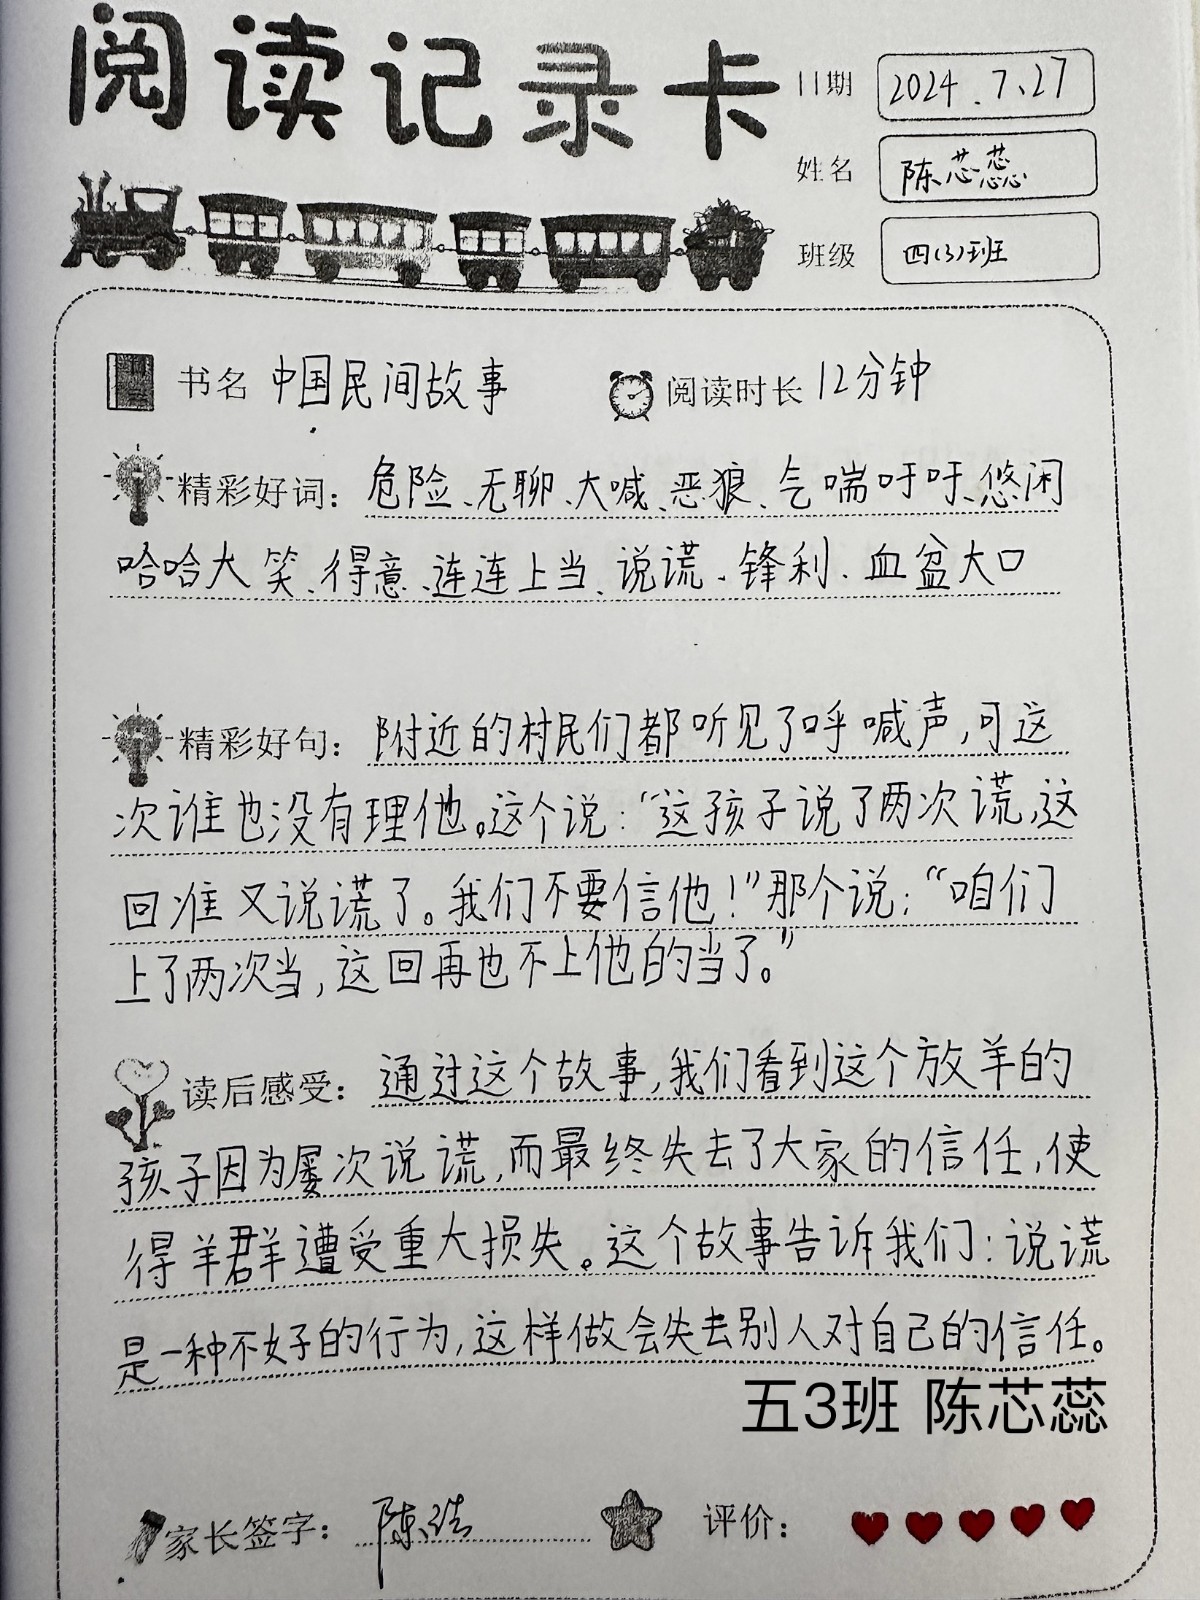 阅读记录卡
日期 2024.7.27
姓名 陈芯蕊
班级 四(3)班
书名 中国民间故事 阅读时长 12分钟
精彩好词：危险、无聊、大喊、恶狼、气喘吁吁、悠闲
哈哈大笑、得意、连连上当、说谎、锋利、血盆大口
精彩好句：附近的村民们都听见了呼喊声,可这
次谁也没有理他。这个说：“这孩子说了两次谎,这
回准又说谎了。我们不要信他！”那个说：“咱们
上了两次当,这回再也不上他的当了。”
读后感受：通过这个故事,我们看到这个放羊的
孩子因为屡次说谎,而最终失去了大家的信任,使
得羊群遭受重大损失。这个故事告诉我们：说谎
是一种不好的行为,这样做会失去别人对自己的信任。
五3班 陈芯蕊
家长签字：陈浩 评价：